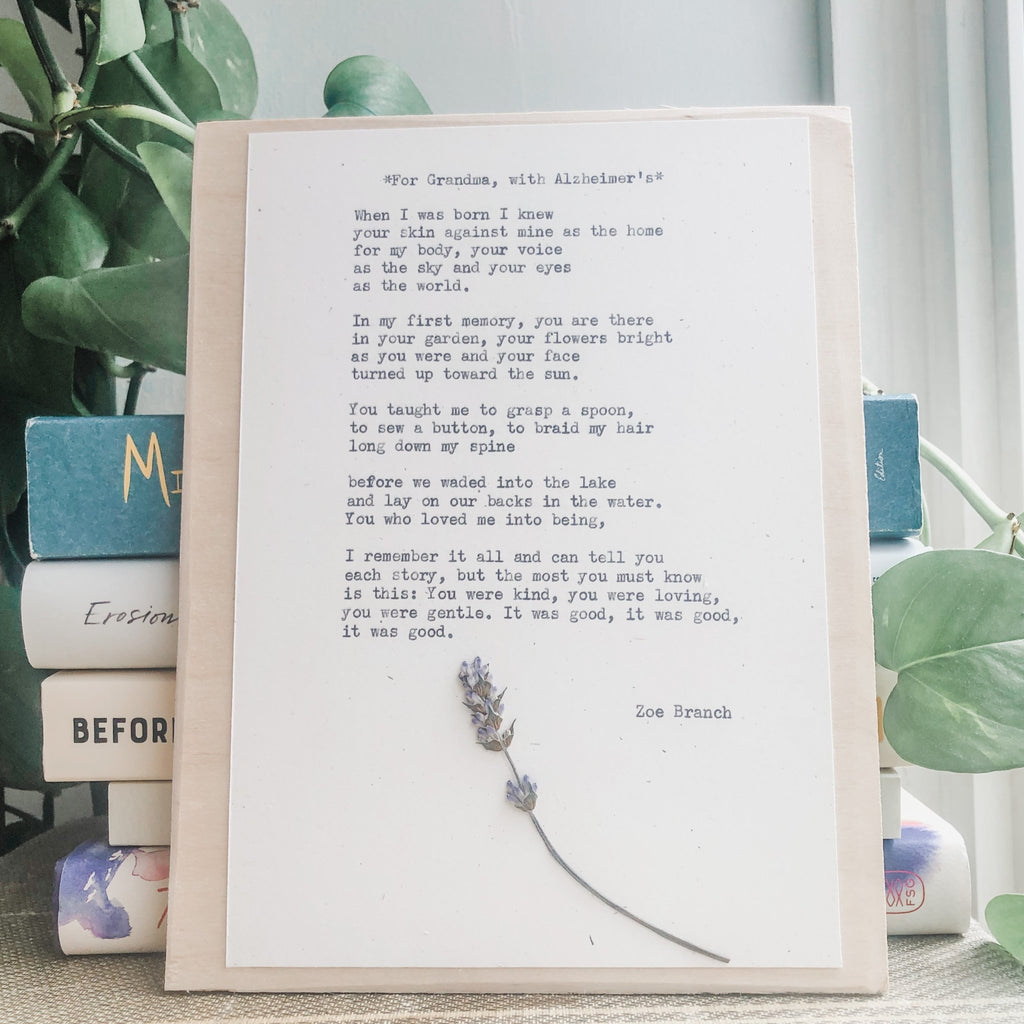 *For Grandma, with Alzheimer's*
When I was born I knew
your skin against mine as the home
for my body, your voice
as the sky and your eyes
as the world.
In my first memory, you are there
in your garden, your flowers bright
as you were and your face
turned up toward the sun.
You taught me to grasp a spoon,
to sew a button, to braid my hair
long down my spine
before we waded into the lake
and lay on our backs in the water.
You who loved me into being,
I remember it all and can tell you
each story, but the most you must know
is this: You were kind, you were loving,
you were gentle. It was good, it was good,
it was good.
Zoe Branch
Mi
Edition
Erosion
BEFOR
FSG